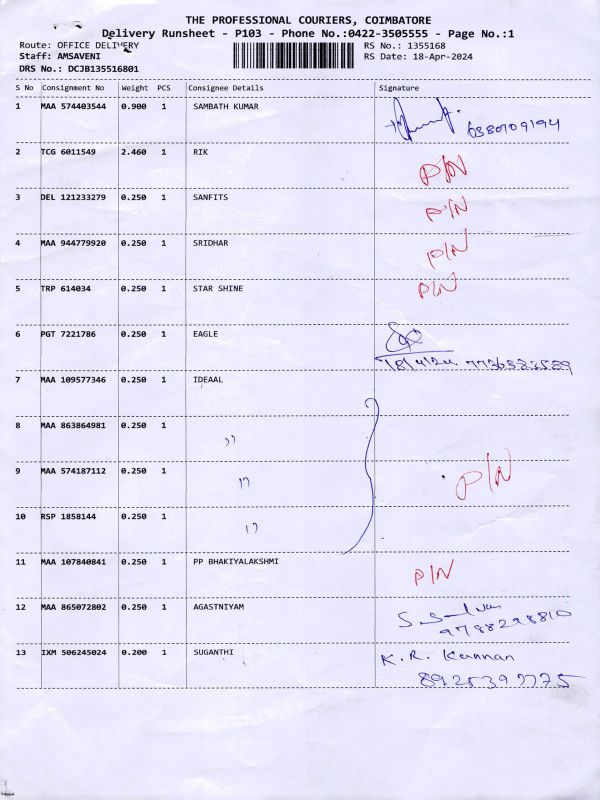 THE PROFESSIONAL COURIERS, COIMBATORE
Delivery Runsheet - P103 - Phone No.:0422-3505555 - Page No.:1
Route: OFFICE DELIVERY RS No.: 1355168
Staff: AMSAVENI RS Date: 18-Apr-2024
DRS No.: DCJB135516801
S No Consignment No Weight PCS Consignee Details Signature
1 MAA 574403544 0.900 1 SAMBATH KUMAR
6380709194
2 TCG 6011549 2.460 1 RIK P/N
3 DEL 121233279 0.250 1 SANFITS P/N
4 MAA 944779920 0.250 1 SRIDHAR P/N
5 TRP 614034 0.250 1 STAR SHINE P/N
6 PGT 7221786 0.250 1 EAGLE
18/4/24
7 MAA 109577346 0.250 1 IDEAAL
8 MAA 863864981 0.250 1 ,,
9 MAA 574187112 0.250 1 ,, P/N
10 RSP 1858144 0.250 1 ,,
11 MAA 107840841 0.250 1 PP BHAKIYALAKSHMI P/N
12 MAA 865072802 0.250 1 AGASTNIYAM
9788298810
13 IXM 506245024 0.200 1 SUGANTHI K.R. Kannan
8925397775